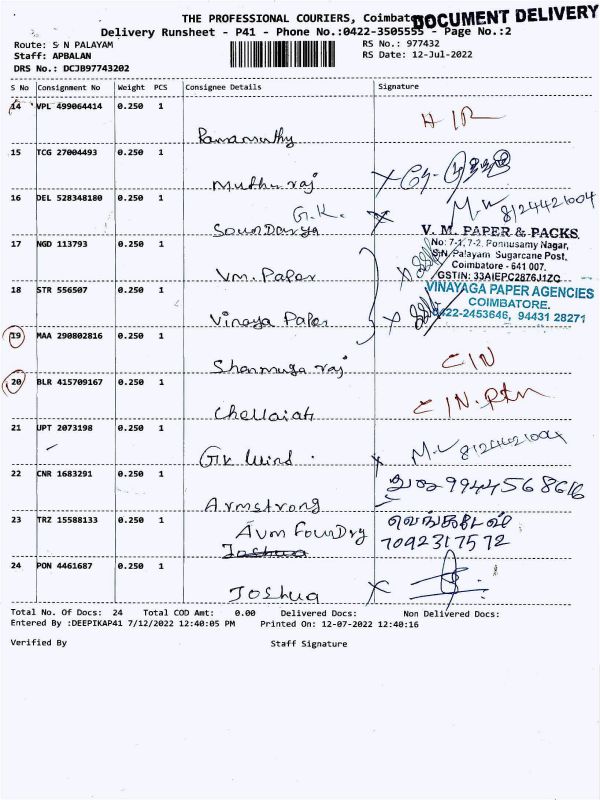 THE PROFESSIONAL COURIERS, Coimbatore
DOCUMENT DELIVERY
Delivery Runsheet - P41 - Phone No.:0422-3505555 - Page No.:2
Route: S N PALAYAM
RS No.: 977432
Staff: APBALAN
RS Date: 12-Jul-2022
DRS No.: DCJB97743202
S No Consignment No Weight PCS Consignee Details Signature
14 VPL 499064414 0.250 1 Ramamurthy
15 TCG 27004493 0.250 1 Muthu raj
16 DEL 528348180 0.250 1 G.K. Soundarya 8124421004
17 NGD 113793 0.250 1 Vm. Paper
V. M. PAPER & PACKS
No: 7-1, 7-2, Ponnusamy Nagar,
S.N. Palayam Sugarcane Post,
Coimbatore - 641 007.
GSTIN: 33AIEPC2876J1ZC
18 STR 556507 0.250 1 Vinaya Paper
VINAYAGA PAPER AGENCIES
COIMBATORE.
0422-2453646, 94431 28271
19 MAA 290802816 0.250 1 Shanmuga raj CIN
20 BLR 415709167 0.250 1 Chellaiah CIN. Rtn
21 UPT 2073198 0.250 1 Gk Wind. 8124421004
22 CNR 1683291 0.250 1 Armstrong 9944568616
23 TRZ 15588133 0.250 1 Avm Foundry வெங்கடேஷ்
Joshua 7092317572
24 PON 4461687 0.250 1 Joshua
Total No. Of Docs: 24 Total COD Amt: 0.00 Delivered Docs: Non Delivered Docs:
Entered By :DEEPIKAP41 7/12/2022 12:40:05 PM Printed On: 12-07-2022 12:40:16
Verified By Staff Signature